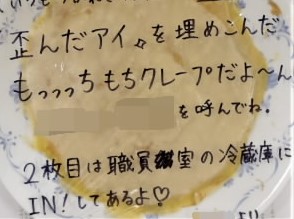 歪んだアイ々を埋めこんだ
もっっっちもちクレープだよ〜ん
を呼んでね。
2枚目は職員室の冷蔵庫に
IN!してあるよ♡